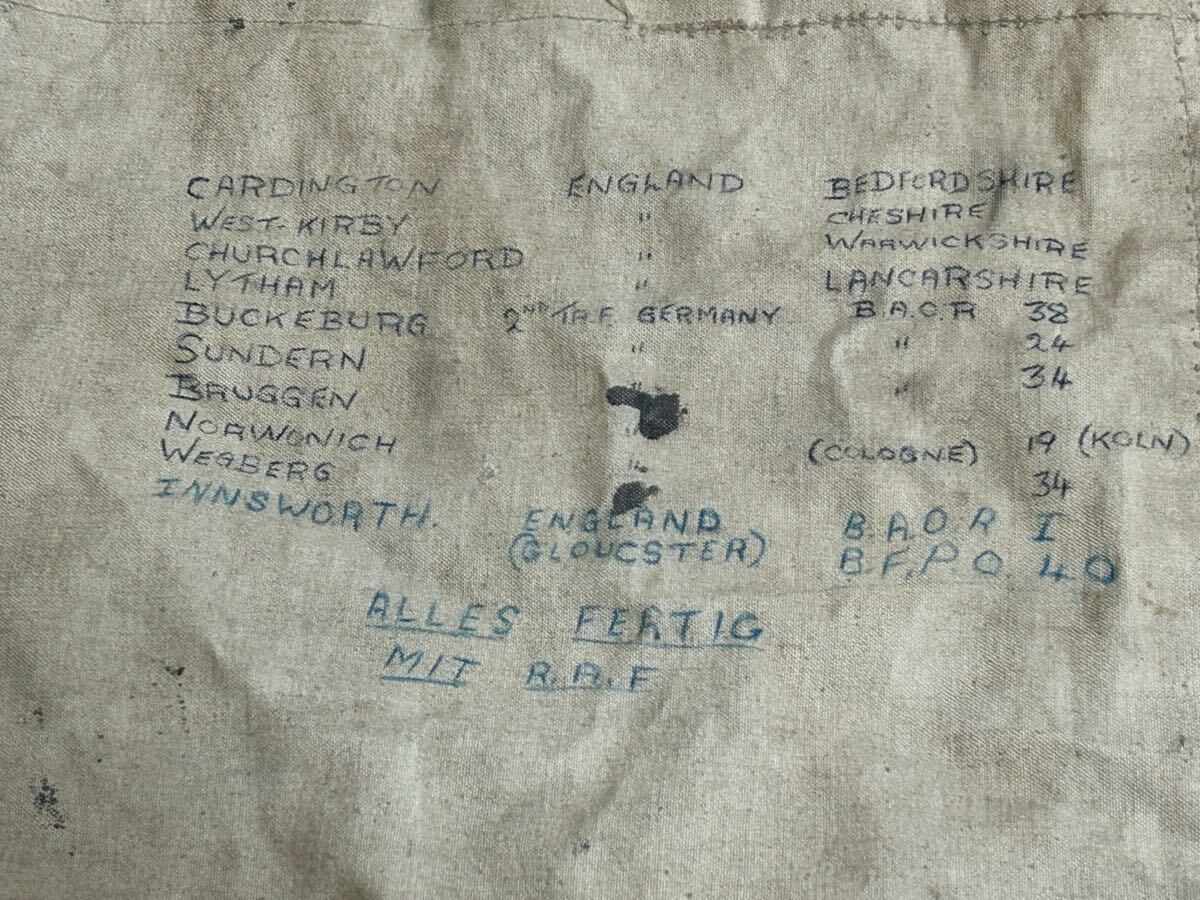 CARDINGTON ENGLAND BEDFORDSHIRE
WEST-KIRBY " CHESHIRE
CHURCHLAWFORD " WARWICKSHIRE
LYTHAM " LANCARSHIRE
BUCKEBURG 2ND T.A.F. GERMANY B.A.O.R 38
SUNDERN " " 24
BRUGGEN " " 34
NORWONICH " (COLOGNE) 19 (KOLN)
WEGBERG " 34
INNSWORTH. ENGLAND B.A.O.R I
(GLOUCSTER) B.F.P.O 40
ALLES FERTIG
MIT R.A.F